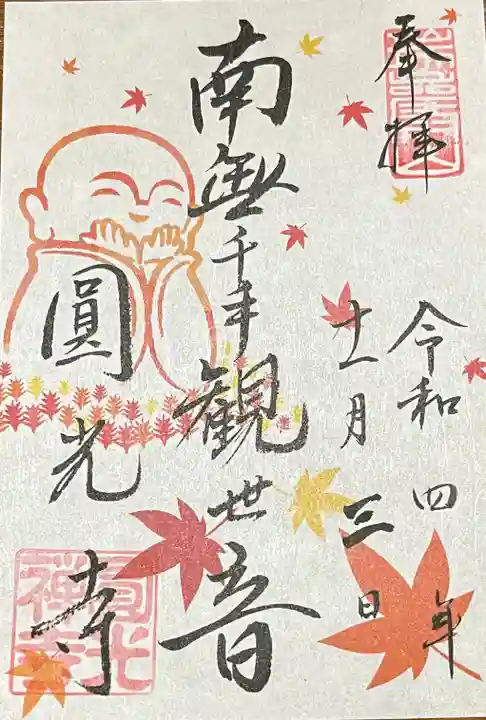 奉拝
令和四年
十一月三日
南無千手観世音
圓光寺
圓光禅寺